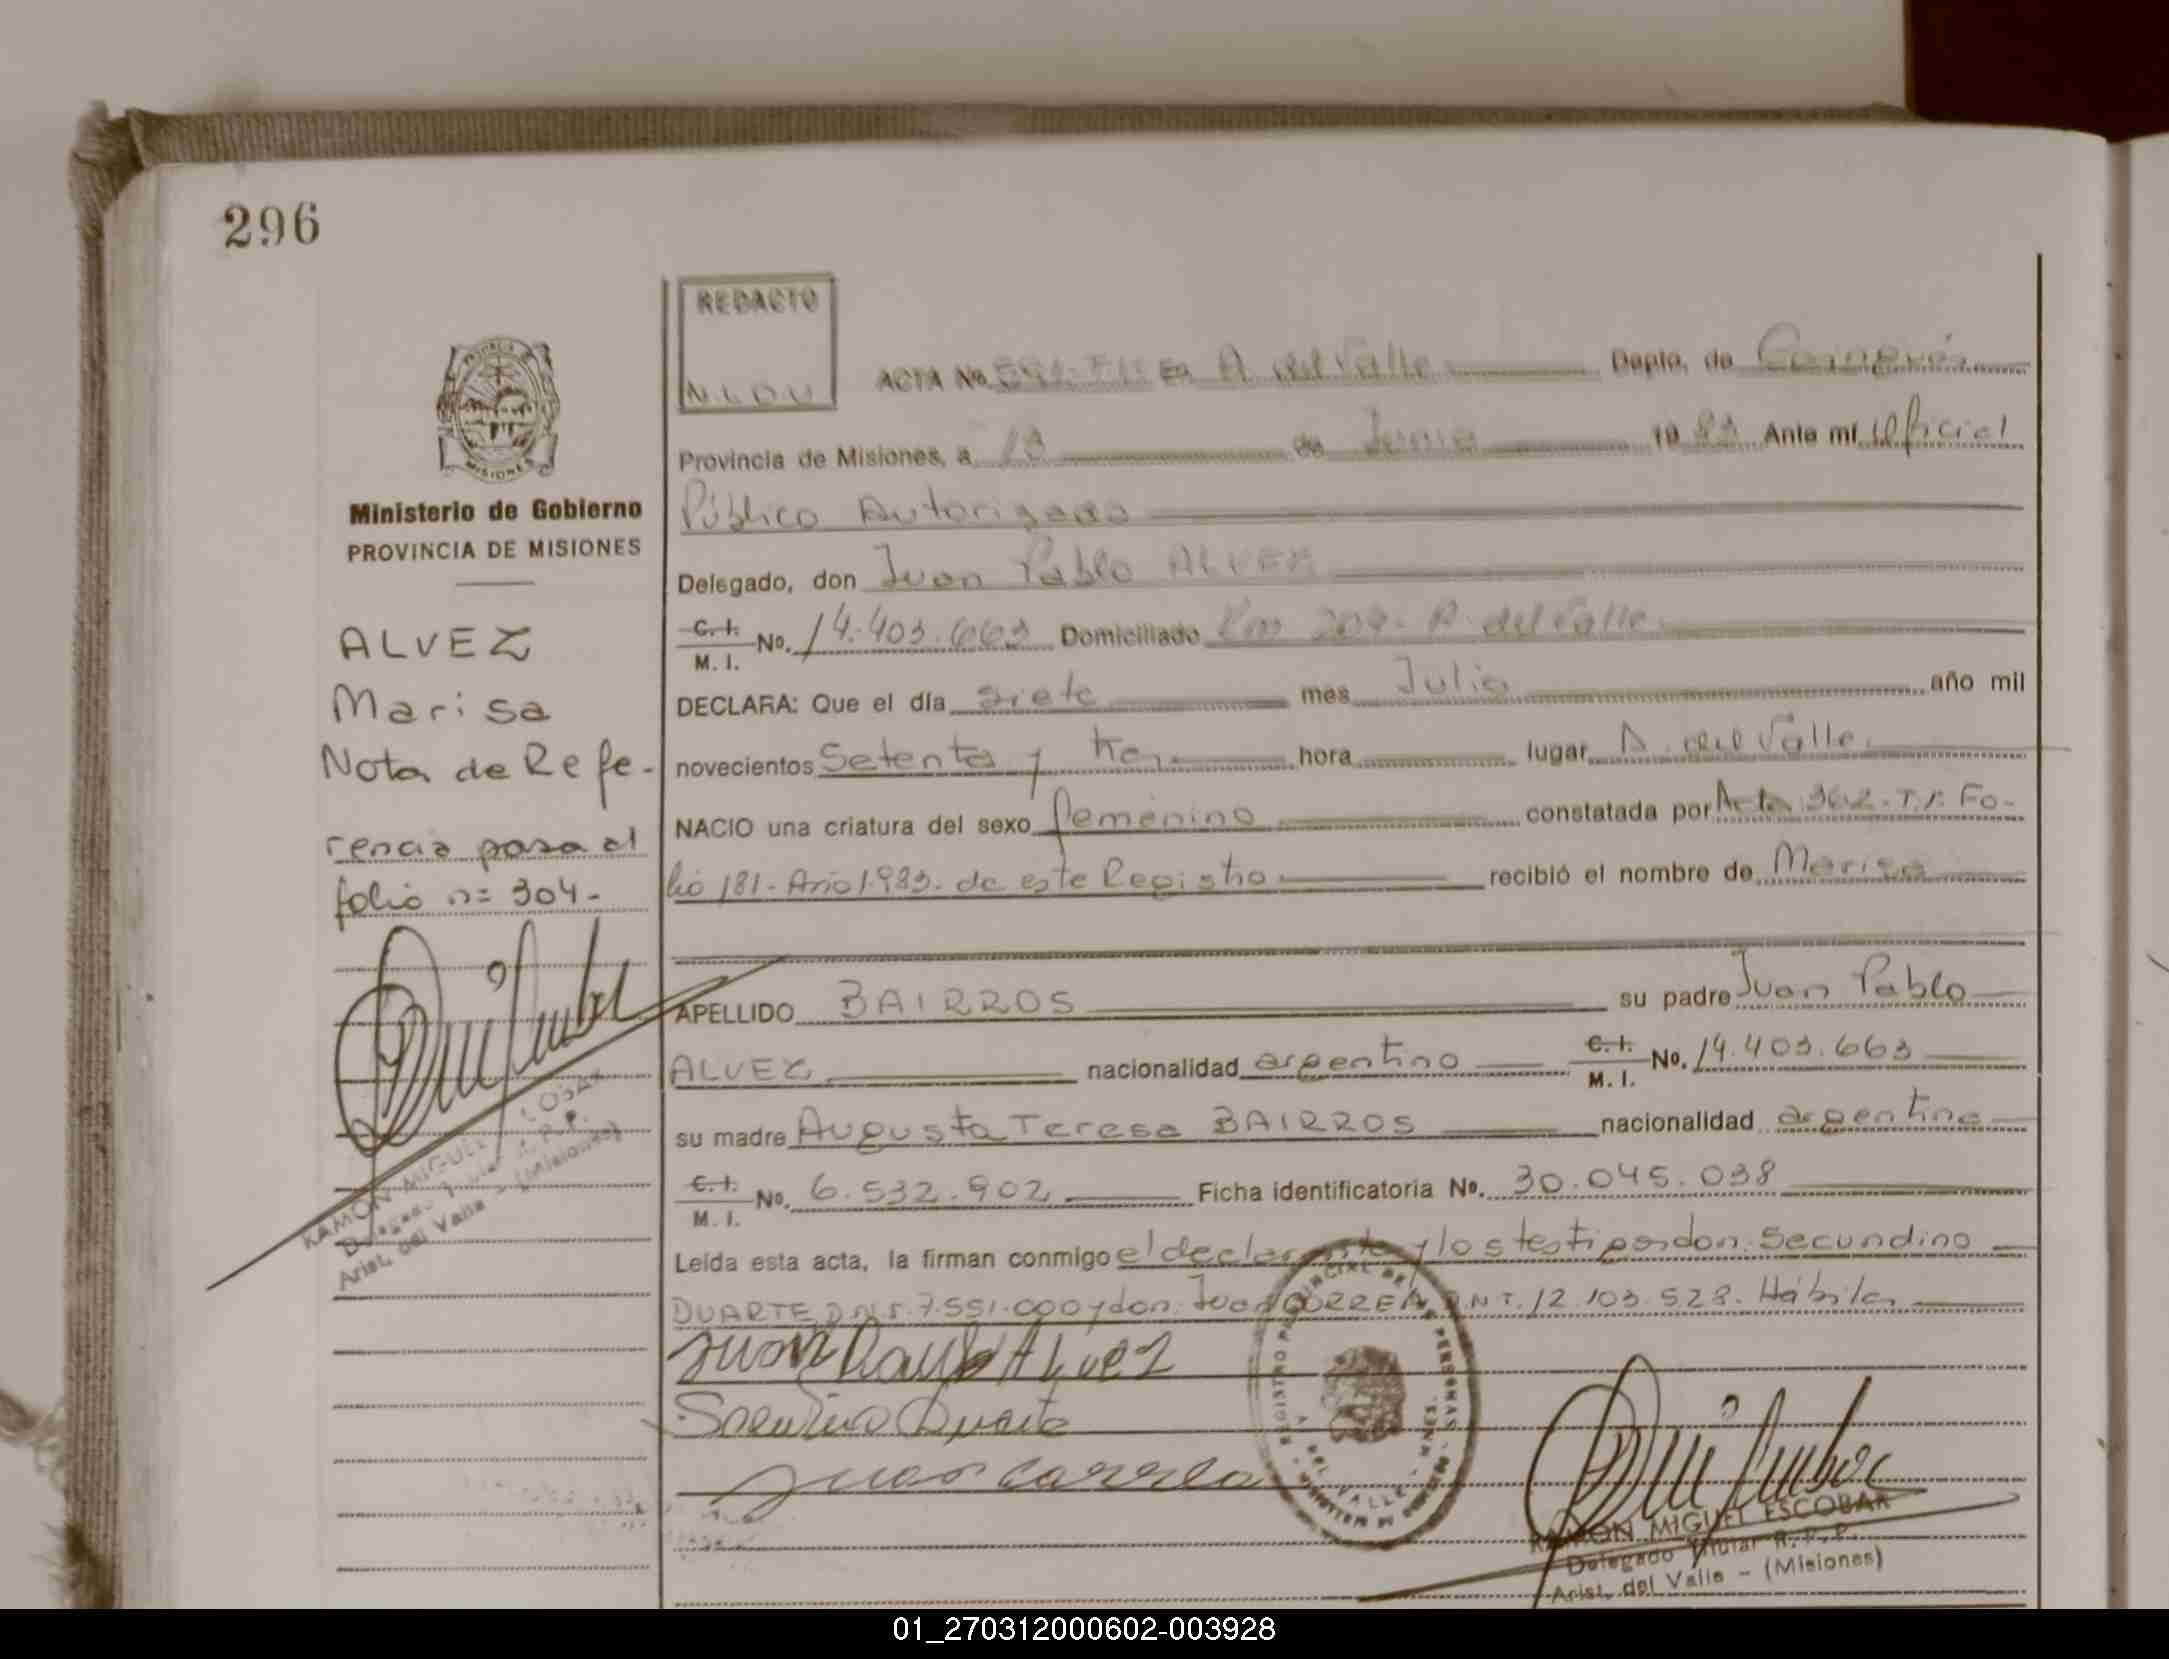 296
REDACTO
N.L.D.U
ACTA No. En A. del Valle Depto. de Cainguás
Provincia de Misiones, a 13 de Junio 19 83 Ante mí Oficial
Público Autorizado
Delegado, don Juan Pablo ALVEZ
C. I. M. I. No. 14.403.663 Domiciliado Km 204. A. del Valle
DECLARA: Que el día siete mes Julio año mil
novecientos Setenta y tres hora lugar A. del Valle.
NACIO una criatura del sexo femenino constatada por Acta 362. T. I. Fo-
lio 181. Año 1.983. de este Registro recibió el nombre de Marisa
APELLIDO BAIRROS su padre Juan Pablo
ALVEZ nacionalidad argentino C. I. M. I. No. 14.403.663
su madre Augusta Teresa BAIRROS nacionalidad argentina
C. I. M. I. No. 6.532.902 Ficha identificatoria No. 30.045.038
Leída esta acta, la firman conmigo el declarante y los testigos don. Secundino
DUARTE, D.N.I. 7.551.000 y don. Juan CORREA, D.N.I. 12.103.528. Hábiles
Juan Paublo Alvez
Secundino Duarte
Juan Correa
REGISTRO PROVINCIAL DE LAS PERSONAS
A. DEL VALLE
RAMON MIGUEL ESCOBAR
Delegado Titular R. P. P.
Arist. del Valle - (Misiones)
PROVINCIA DE
MISIONES
Ministerio de Gobierno
PROVINCIA DE MISIONES
ALVEZ
Marisa
Nota de Refe-
rencia pasa al
folio n= 304-
RAMON MIGUEL ESCOBAR
Delegado Titular R. P. P.
Arist. del Valle - (Misiones)
01_270312000602-003928